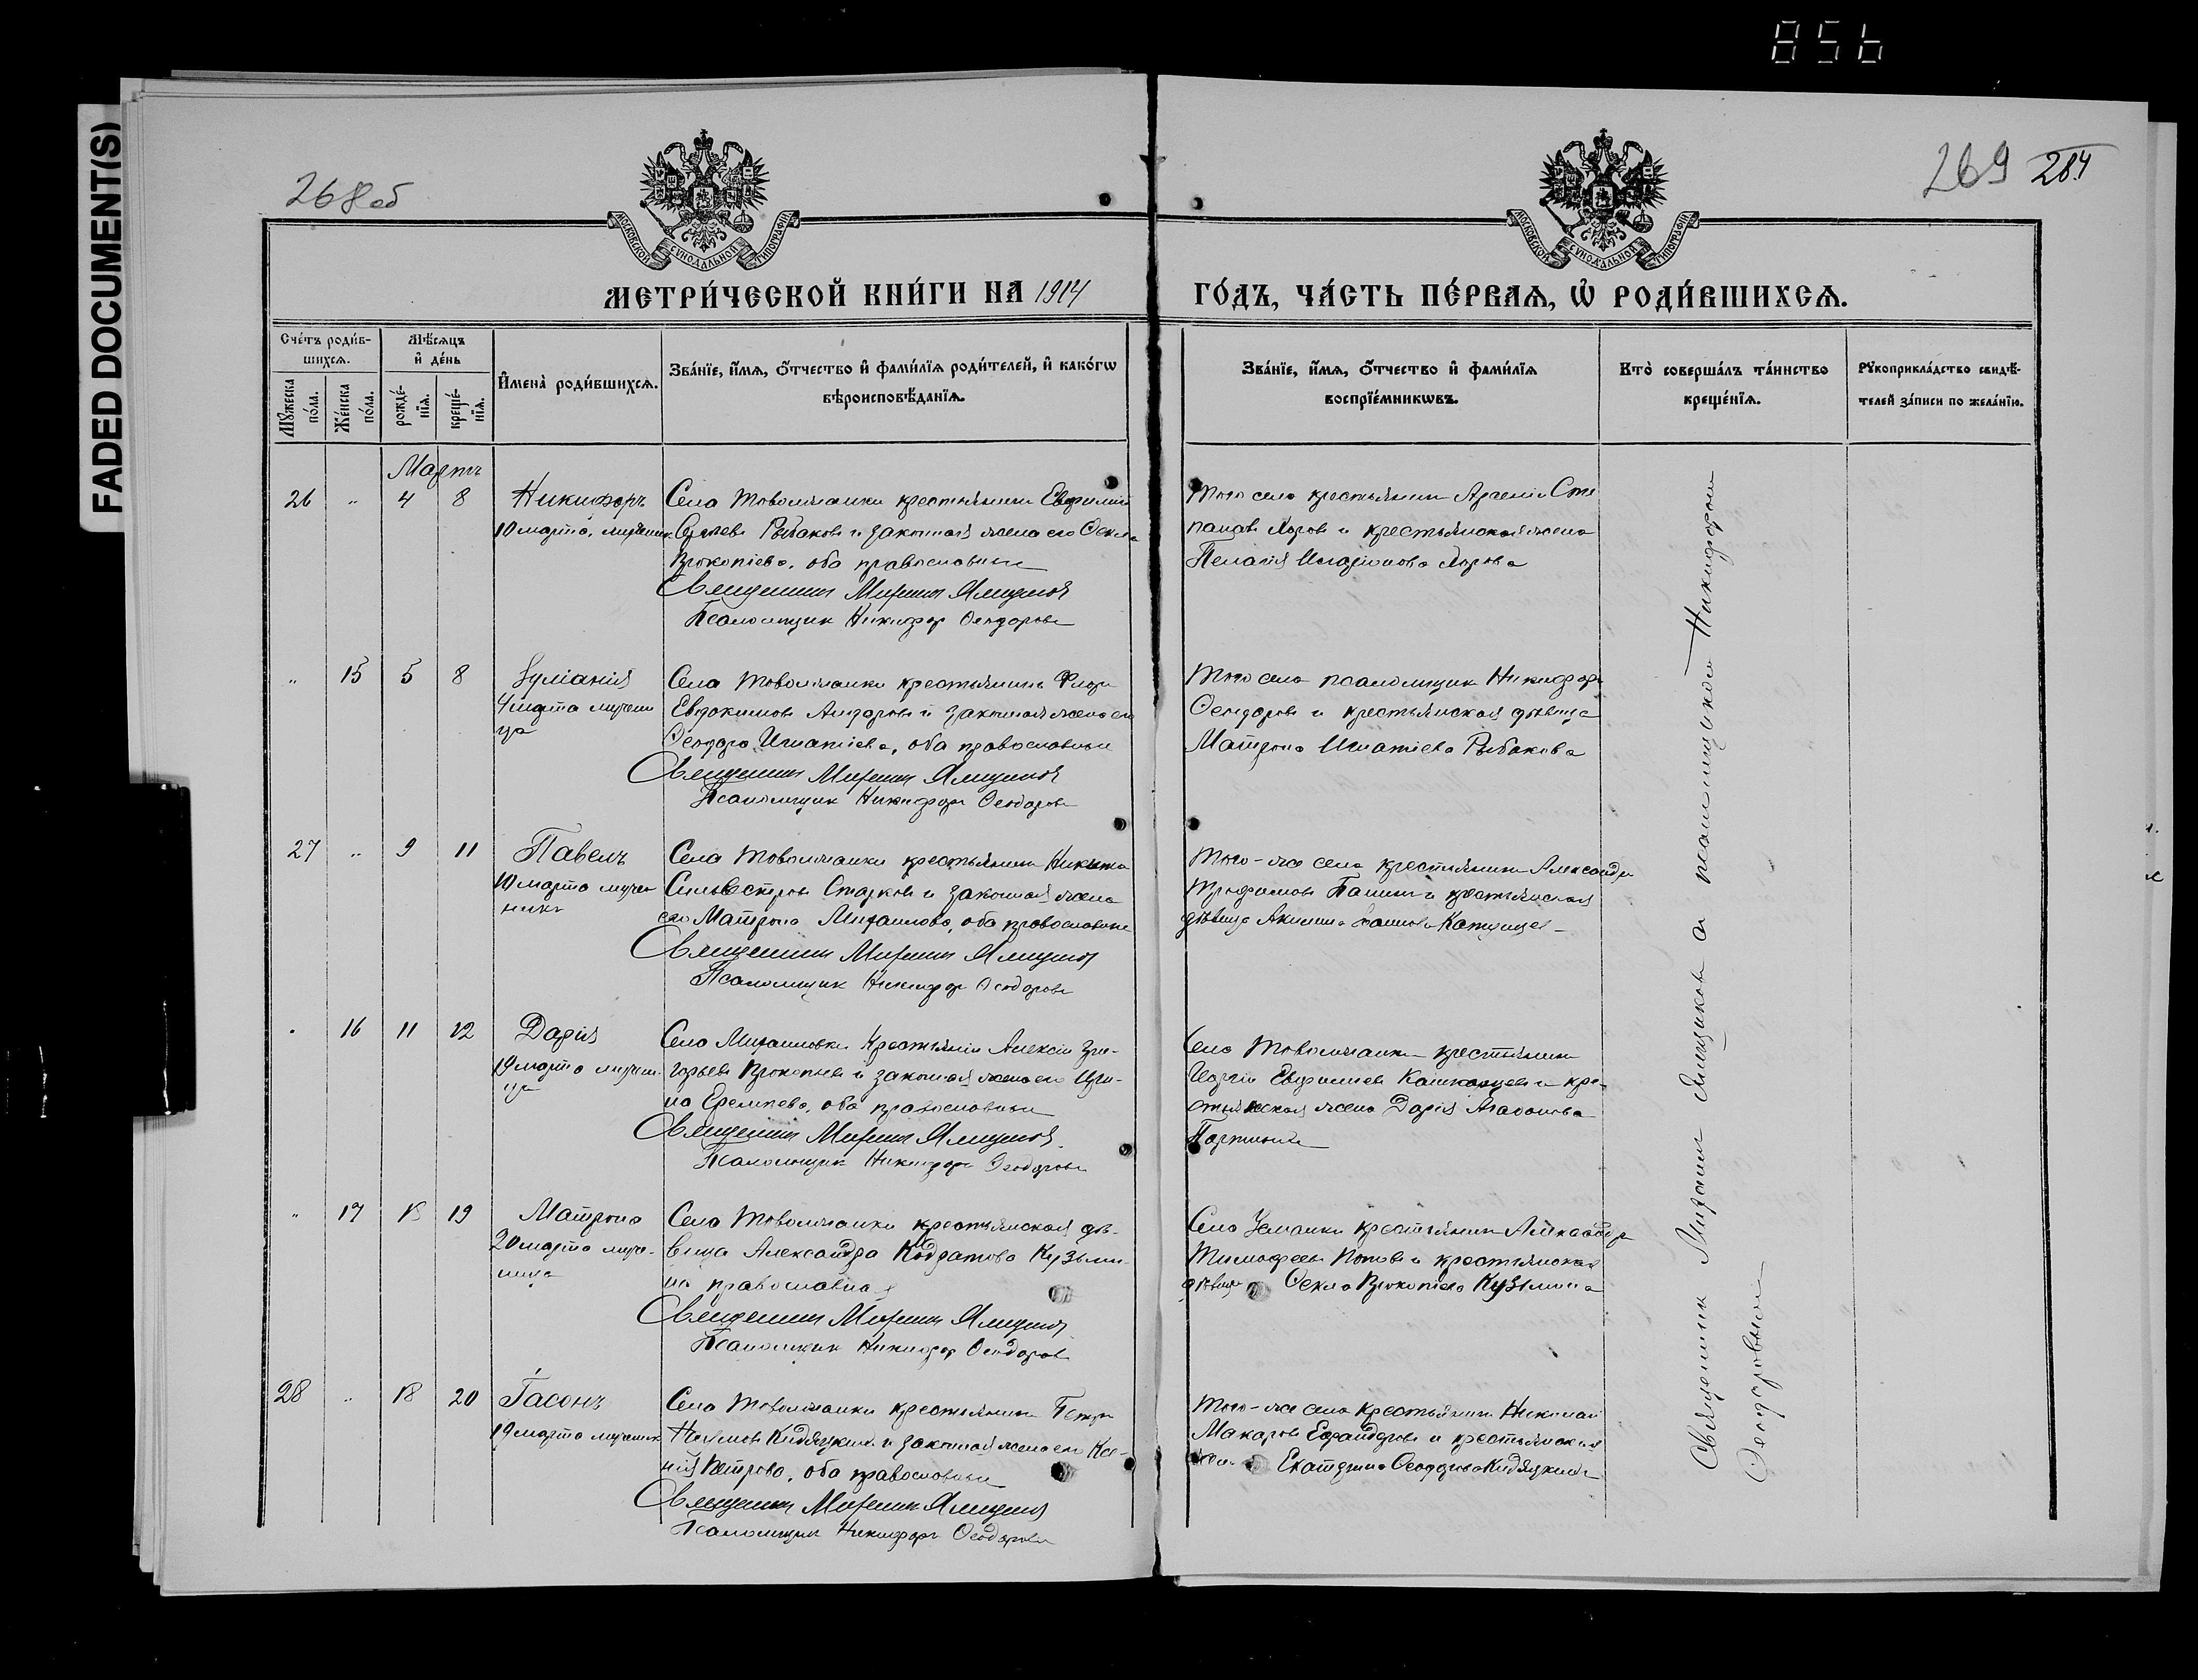 856
FADED DOCUMENT(S)
268об
269 284
МОСКОВСКОЙ СѴНОДАЛЬНОЙ ТИПОГРАФІИ
МОСКОВСКОЙ СѴНОДАЛЬНОЙ ТИПОГРАФІИ
МЕТРИ́ЧЕСКОЙ КНИ́ГИ НА 1914
ГО́ДЪ, ЧА́СТЬ ПЕ́РВАѦ, Ѡ҆ РОДИ́ВШИХСѦ.
Сче́тъ роди́в-
шихсѧ.
Мꙋ́жеска по́ла.
Же́нска по́ла.
Мѣ́сѧцъ
и҆ де́нь
рожде́-
нїѧ.
креще́-
нїѧ.
И҆мена̀ роди́вшихсѧ.
Зва́нїе, и҆́мѧ, ѻ҆́тчество и҆ фами́лїѧ роди́телей, и҆ како́гѡ
вѣроисповѣ́данїѧ.
Зва́нїе, и҆́мѧ, ѻ҆́тчество и҆ фами́лїѧ
воспрїе́мникѡвъ.
Кто̀ соверша́лъ та́инство
креще́нїѧ.
Рꙋкоприкла́дство свидѣ́-
телей за́писи по жела́нїю.
Мартъ
26 " 4 8 Никифоръ
10 марта, мученик
Села Товолжанки крестьянинъ Евфимій
Сергѣевъ Рыбаковъ и законная жена его Ѳекла
Прокопіева, оба православные
Священникъ Михаилъ Ямщиковъ
Псаломщик Никифор Ѳеодоровъ
Того села крестьянинъ Арсеній Сте
пановъ и крестьянская жена
Пелагія
" 15 5 8 Іуліанія
4 марта мучени
ца
Села Товолжанки крестьянинъ Флоръ
Евдокимовъ и законная жена его
Ѳеодора Игнатіева, оба православные
Священникъ Михаилъ Ямщиковъ
Псаломщик Никифоръ Ѳеодоровъ
Того села псаломщик Никифоръ
Ѳеодоровъ и крестьянская дѣвица
Матрона Игнатіева Рыбакова
27 " 9 11 Павелъ
10 марта муче
никъ
Села Товолжанки крестьянинъ Никита
Сильвестровъ Старковъ и законная жена
его Матрона Михаилова, оба православные
Священникъ Михаилъ Ямщиковъ
Псаломщик Никифоръ Ѳеодоровъ
Того-же села крестьянинъ Александръ
Трофимовъ и крестьянская
дѣвица
16 11 12 Дарія
19 марта мучени
ца
Села Михайловки крестьянинъ Алексій Гри-
горьевъ Прокопьевъ и законная жена его Ири-
на Еремѣева, оба православные
Священникъ Михаилъ Ямщиковъ
Псаломщик Никифоръ Ѳеодоровъ
Села Товолжанки крестьянинъ
Георгій Евфиміевъ и кре-
стьянская жена Дарія Агафонова
" 17 18 19 Матрона
20 марта муче-
ница
Села Товолжанки крестьянская дѣ-
вица Александра Кодратова Кузьми-
на православная
Священникъ Михаилъ Ямщиковъ
Псаломщик Никифор Ѳеодоров
Села Усманки крестьянинъ Александръ
Тимофеевъ Поповъ и крестьянская
дѣвица Ѳекла Прокопіева Кузьмина
28 " 18 20 Іасонъ
19 марта мученик
Села Товолжанки крестьянинъ Петръ
Наумовъ и законная жена его Ксе-
нія Петрова, оба православные
Священникъ Михаилъ Ямщиковъ
Псаломщик Никифоръ Ѳеодоровъ
Того-же села крестьянинъ Николай
Макаровъ и крестьянская
жена Екатерина Ѳеодорова
Священник Михаил Ямщиковъ а псаломщиком Никифором
Ѳеодоровымъ